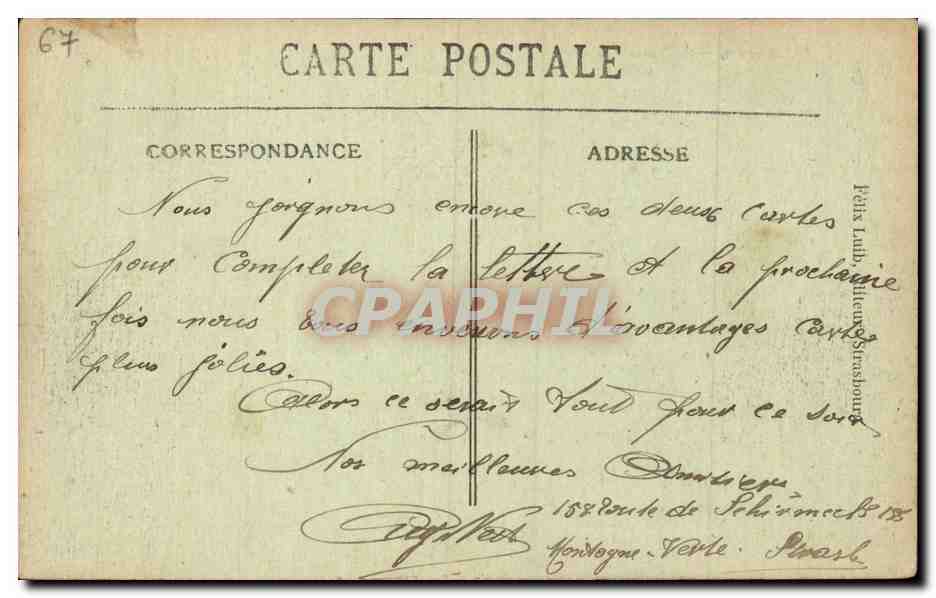 67
CARTE POSTALE
CORRESPONDANCE
ADRESSE
Nous joignons encore ces deux cartes
pour completer la lettre et la prochaine
fois nous vous enverons d'avantages cartes
plus jolies.
Alors ce serait tout pour ce soir
Nos meilleures Amitiers
158 route de Schirmeck 158
Montagne-Verte. Strasb
Félix Luib, Editeur, Strasbourg
CPAPHIL